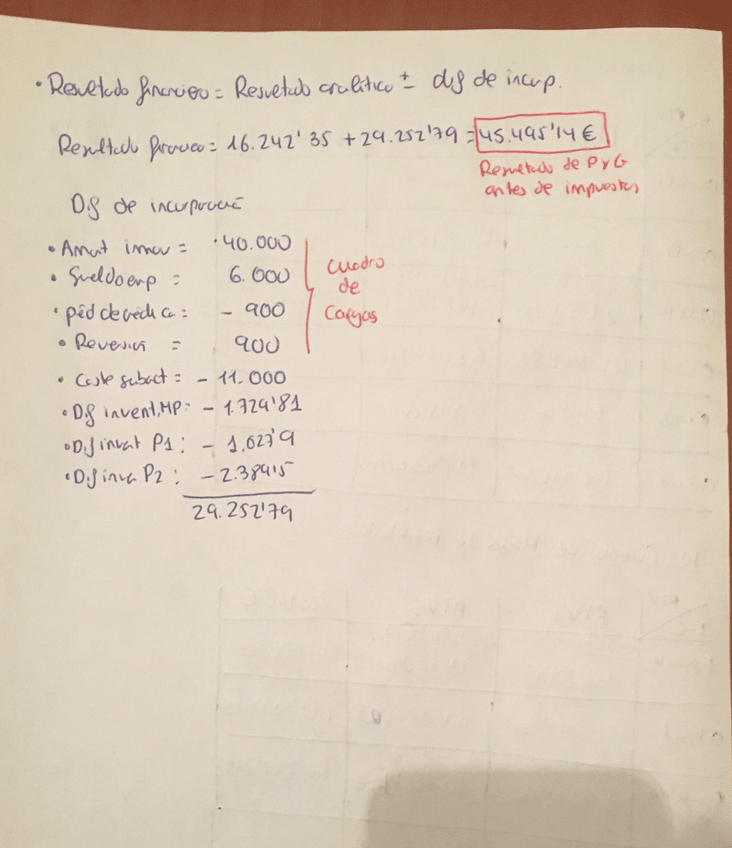 • Resultado financiero = Resultado analítico ± dif de incorp.
Resultado financ = 16.242'35 + 29.252'79 = 45.495'14 €
Resultado de PyG
antes de impuestos
Dif de incorporac
• Amort inmov = 40.000
• Sueldo emp = 6.000
• - 900
• Reversión = 900
Cuadro
de
Cargas
• Coste subact = - 11.000
• Dif invent. MP = - 1.729'81
• Dif invent P1: - 1.027'9
• Dif inve P2: - 2.389'5
29.252'79